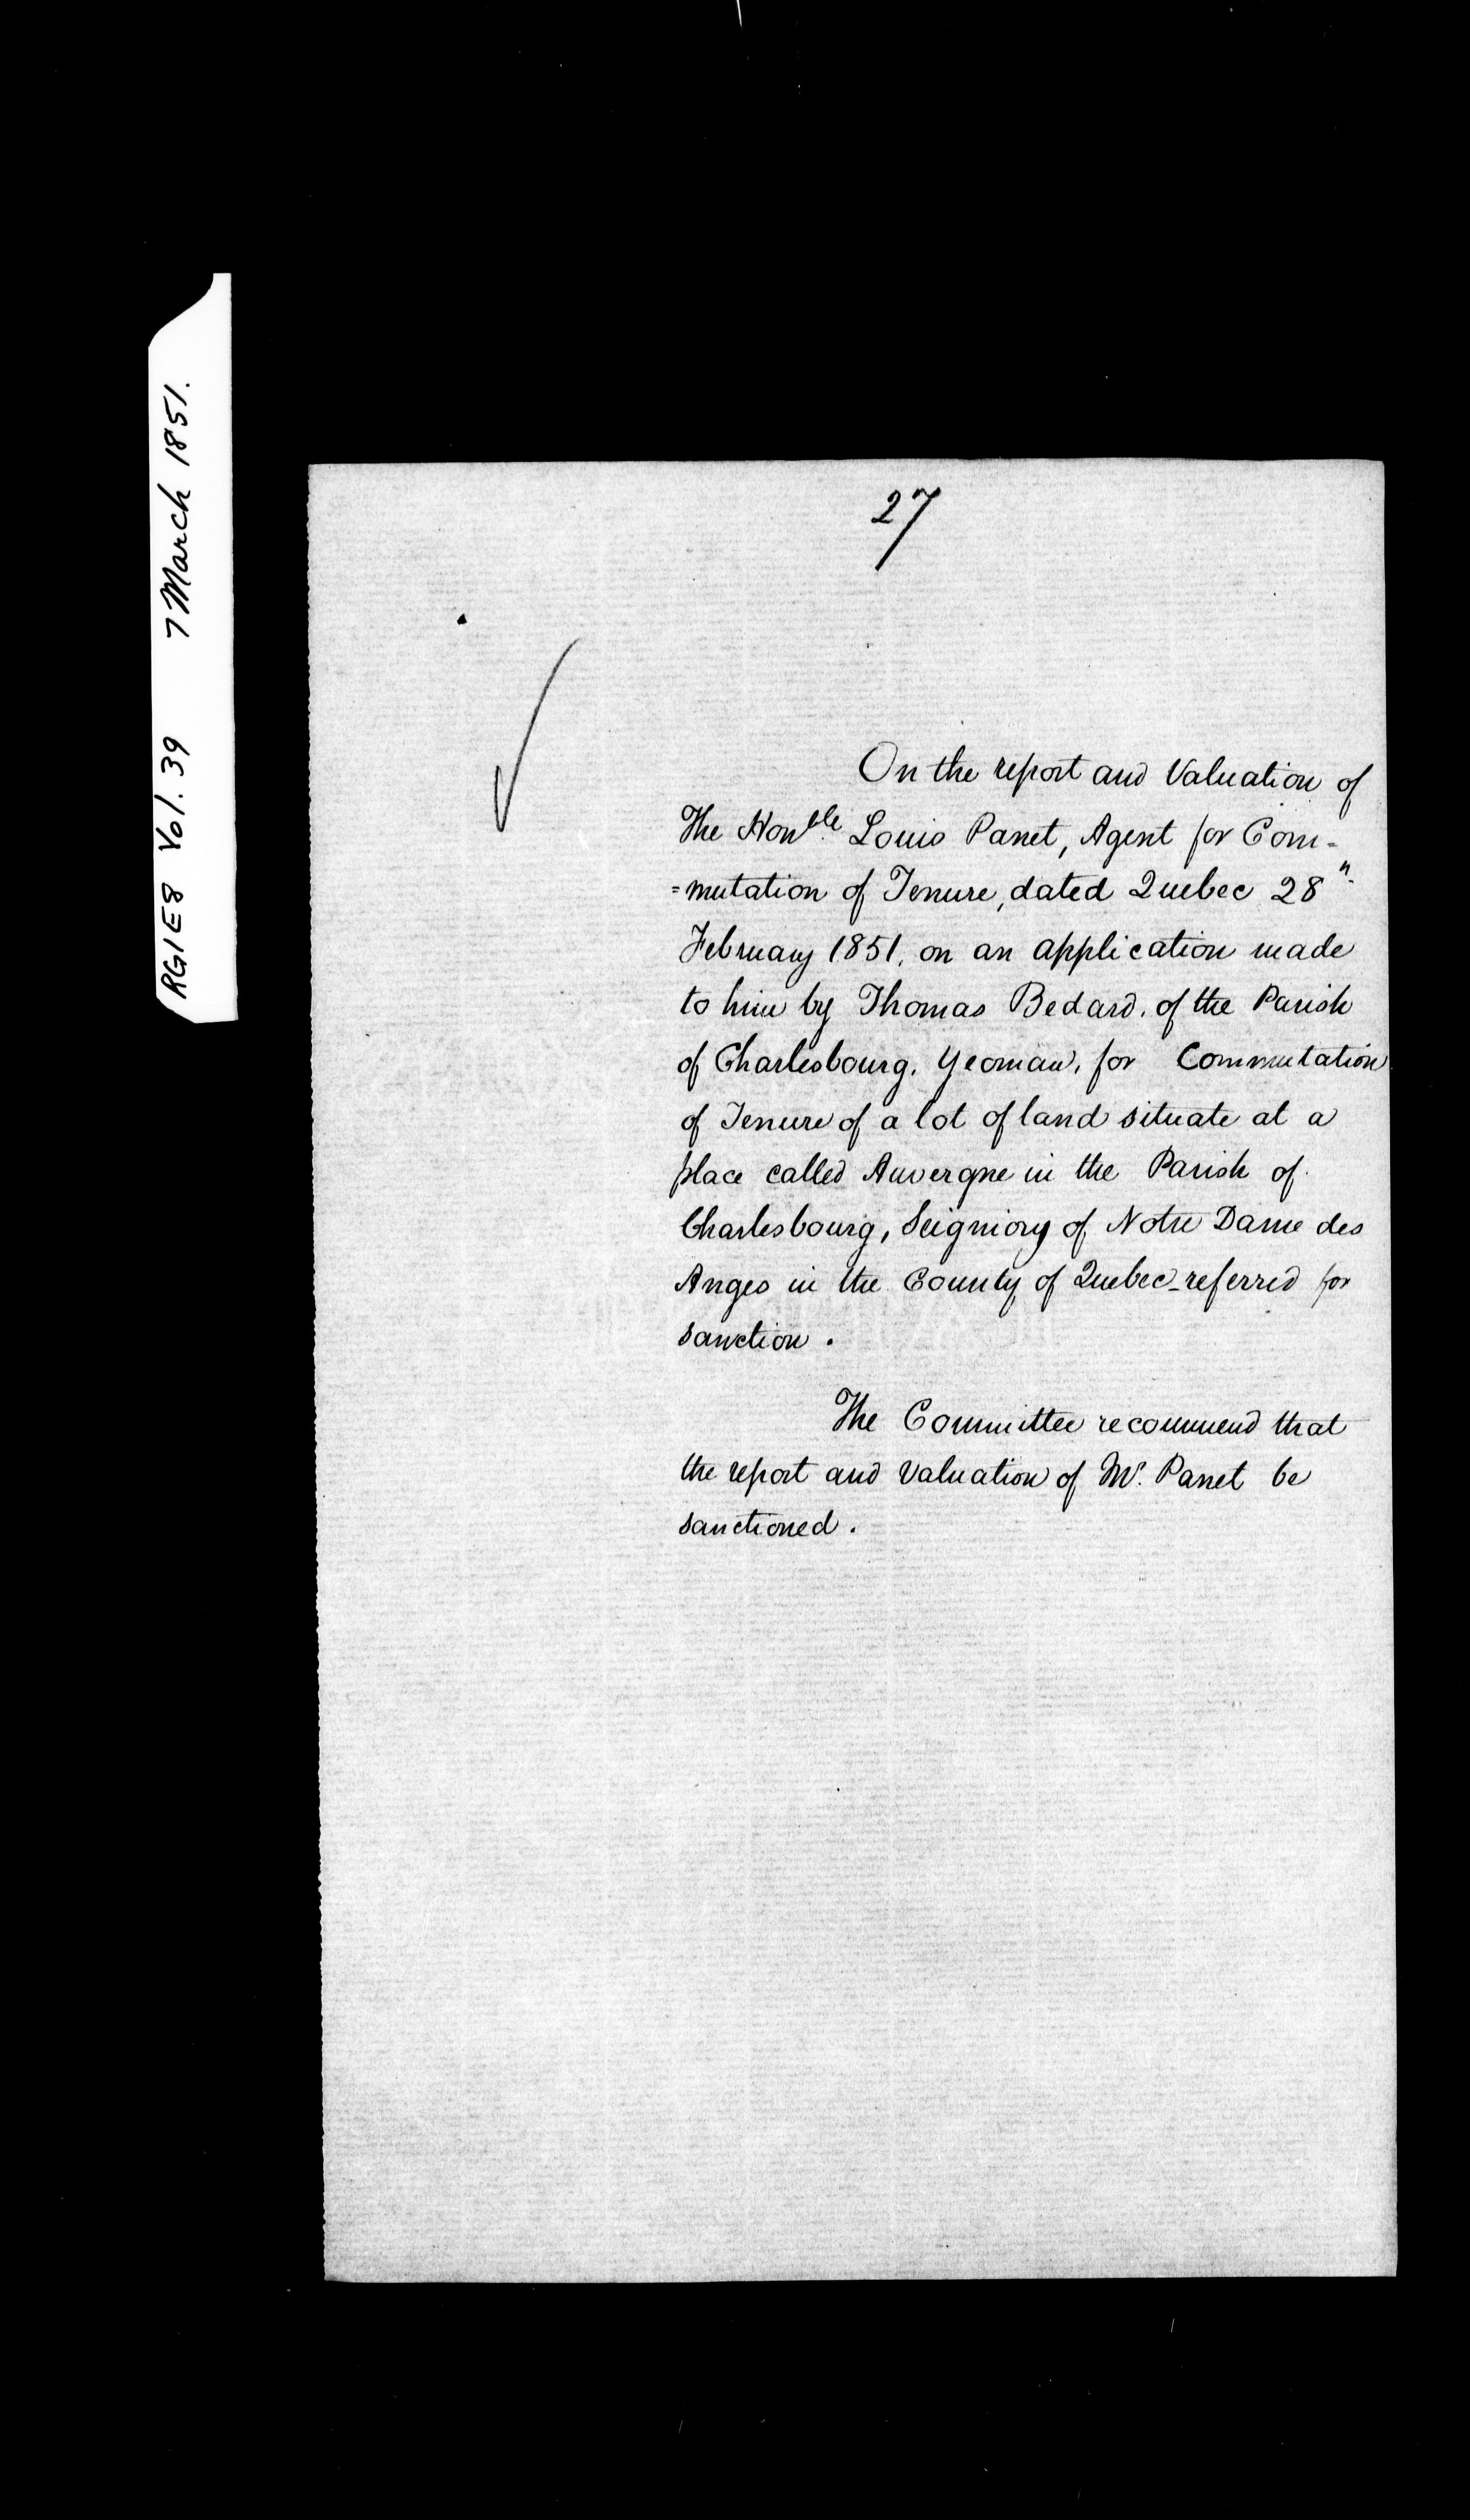 RG1E8 Vol. 39 7 March 1851.
27
On the report and Valuation of
The Honble. Louis Panet, Agent for Com-
=mutation of Tenure, dated Quebec 28".
February 1851. on an application made
to him by Thomas Bedard. of the Parish
of Charlesbourg. Yeoman, for Commutation
of Tenure of a lot of land situate at a
place called Auvergne in the Parish of
Charlesbourg, Seigniory of Notre Dame des
Anges in the County of Quebec - referred for
sanction.
The Committee recommend that
the report and Valuation of Mr. Panet be
sanctioned.